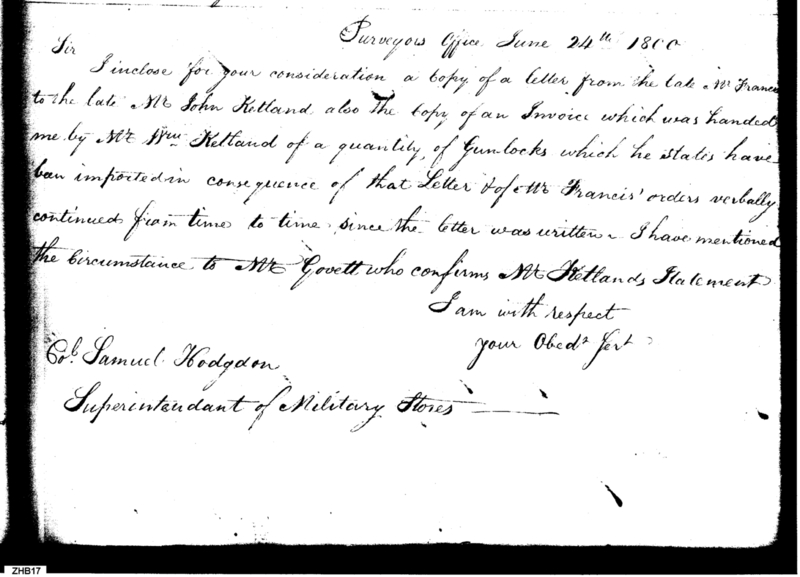 Purveyors Office June 24th 1800
Sir
I inclose for your consideration a Copy of a letter from the late Mr Francis
to the late Mr John Ketland also the Copy of an Invoice which was handed
me by Mr Wm Ketland of a quantity of Gunlocks which he states have
ban imported in consequence of that Letter & of Mr Francis' orders verbally
continued from time to time since the letter was written - I have mentioned
the Circumstance to Mr Govett who confirms Mr Ketlands Statement
I am with respect
your Obedt Sert
Col. Samuel Hodgdon
Superintendant of Military Stores
ZHB17